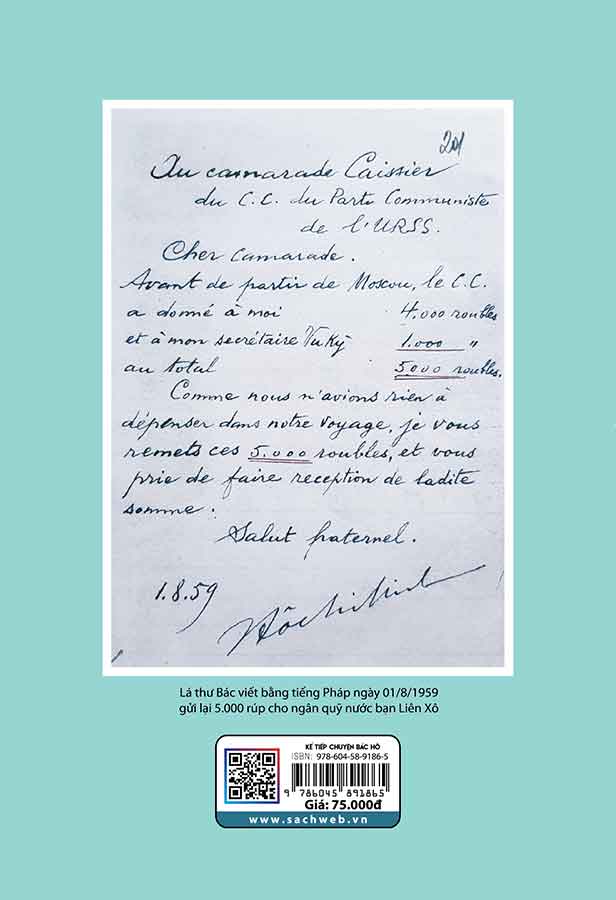 201
Au camarade Caissier
du C.C. du Parti Communiste
de l'URSS.
Cher camarade.
Avant de partir de Moscou, le C.C.
a donné à moi 4.000 roubles
et à mon secrétaire Vu Ky 1.000 "
au total 5.000 roubles.
Comme nous n'avions rien à
dépenser dans notre voyage, je vous
remets ces 5.000 roubles, et vous
prie de faire reception de ladite
somme.
Salut fraternel.
1.8.59
Hôchiminh
Lá thư Bác viết bằng tiếng Pháp ngày 01/8/1959
gửi lại 5.000 rúp cho ngân quỹ nước bạn Liên Xô
KỂ TIẾP CHUYỆN BÁC HỒ
ISBN: 978-604-58-9186-5
9 786045 891865
Giá: 75.000đ
www.sachweb.vn